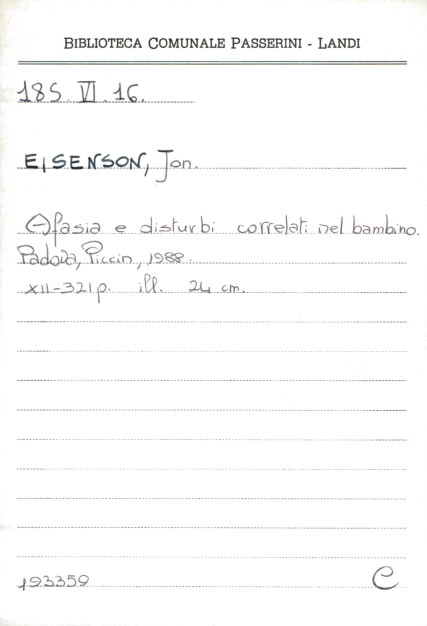 BIBLIOTECA COMUNALE PASSERINI - LANDI
185. VI. 16.
EISENSON, Jon.
Afasia e disturbi correlati nel bambino.
Padova, Piccin, 1988.
XII-321 p. ill. 24 cm.
193359 C